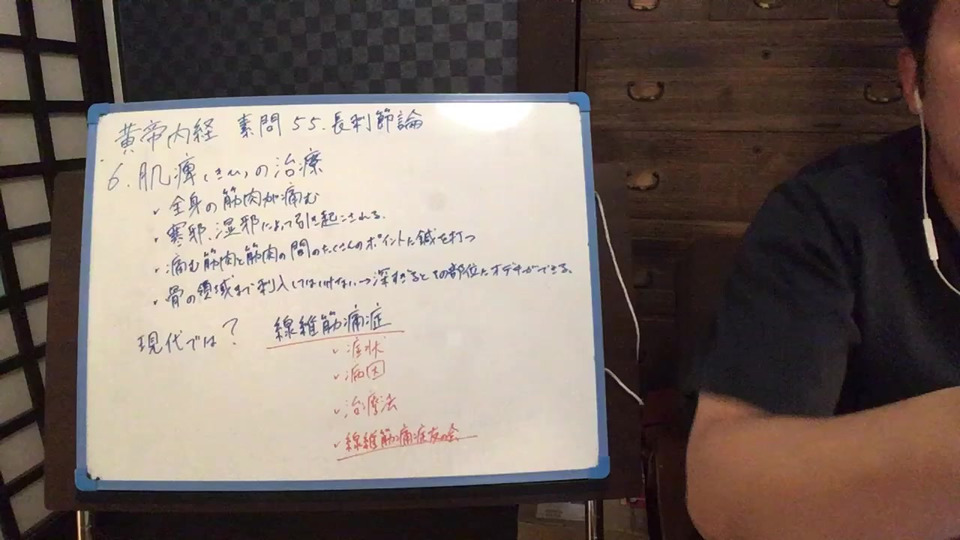 黄帝内経 素問 55. 長刺節論
6. 肌痺(きひ)の治療
・全身の筋肉が痛む
・寒邪、湿邪によって引き起こされる.
・痛む筋肉と筋肉の間のたくさんのポイントに鍼を打つ
・骨の領域まで刺入してはいけない→深すぎるとその部位にオデキができる.
現代では? 線維筋痛症
・症状
・病因
・治療法
・線維筋痛症友の会